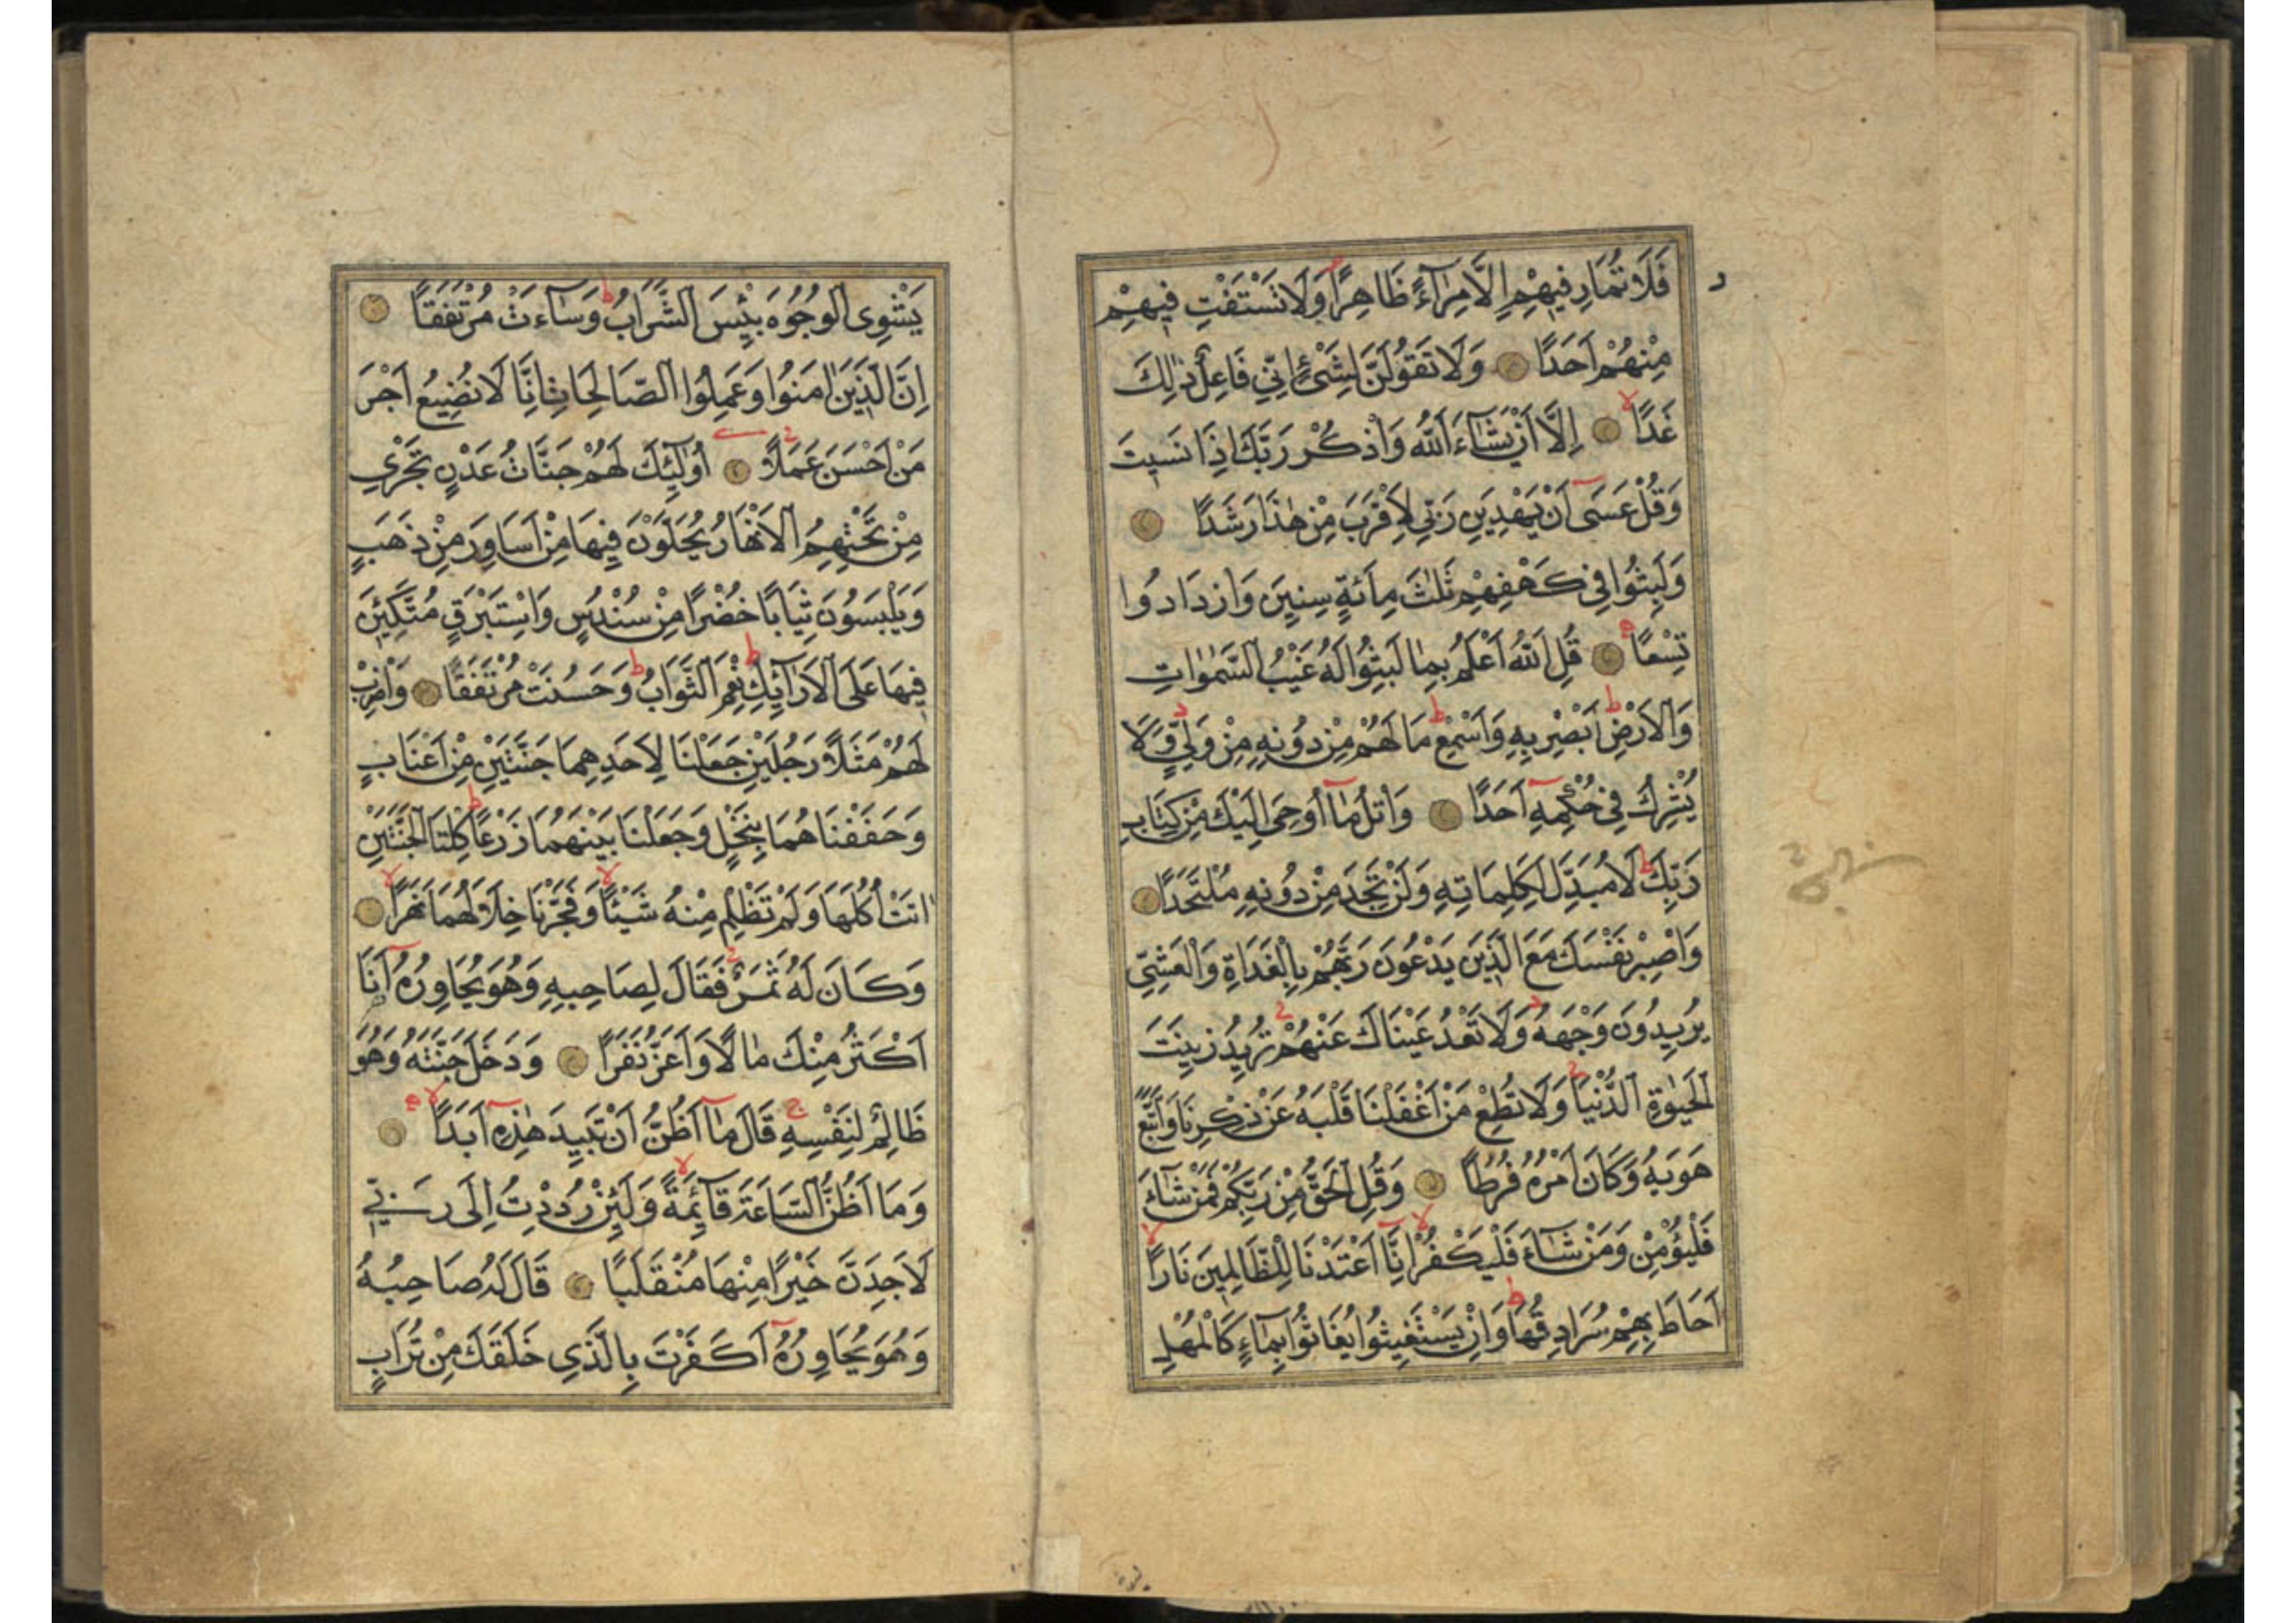 فَلَا تُمَارِ فِيهِمْ إِلَّا مِرَآءً ظَاهِرًا وَلَا تَسْتَفْتِ فِيهِمْ
مِنْهُمْ أَحَدًا وَلَا تَقُولَنَّ لِشَىْءٍ إِنِّي فَاعِلٌ ذٰلِكَ
غَدًا إِلَّا أَنْ يَشَآءَ اللّٰهُ وَاذْكُرْ رَبَّكَ إِذَا نَسِيتَ
وَقُلْ عَسَىٓ أَنْ يَهْدِيَنِ رَبِّي لِأَقْرَبَ مِنْ هٰذَا رَشَدًا
وَلَبِثُوا فِي كَهْفِهِمْ ثَلٰثَ مِائَةٍ سِنِينَ وَازْدَادُوا
تِسْعًا قُلِ اللّٰهُ أَعْلَمُ بِمَا لَبِثُوا لَهُ غَيْبُ السَّمٰوَاتِ
وَالْأَرْضِ أَبْصِرْ بِهِ وَأَسْمِعْ مَا لَهُمْ مِنْ دُونِهِ مِنْ وَلِيٍّ وَلَا
يُشْرِكُ فِي حُكْمِهِ أَحَدًا وَاتْلُ مَآ أُوحِيَ إِلَيْكَ مِنْ كِتَابِ
رَبِّكَ لَا مُبَدِّلَ لِكَلِمَاتِهِ وَلَنْ تَجِدَ مِنْ دُونِهِ مُلْتَحَدًا
وَاصْبِرْ نَفْسَكَ مَعَ الَّذِينَ يَدْعُونَ رَبَّهُمْ بِالْغَدَاةِ وَالْعَشِيِّ
يُرِيدُونَ وَجْهَهُ وَلَا تَعْدُ عَيْنَاكَ عَنْهُمْ تُرِيدُ زِينَتَ
الْحَيٰوةِ الدُّنْيَا وَلَا تُطِعْ مَنْ أَغْفَلْنَا قَلْبَهُ عَنْ ذِكْرِنَا وَاتَّبَعَ
هَوٰيهُ وَكَانَ أَمْرُهُ فُرُطًا وَقُلِ الْحَقُّ مِنْ رَبِّكُمْ فَمَنْ شَآءَ
فَلْيُؤْمِنْ وَمَنْ شَآءَ فَلْيَكْفُرْ إِنَّآ أَعْتَدْنَا لِلظَّالِمِينَ نَارًا
أَحَاطَ بِهِمْ سُرَادِقُهَا وَإِنْ يَسْتَغِيثُوا يُغَاثُوا بِمَآءٍ كَالْمُهْلِ
يَشْوِي الْوُجُوهَ بِئْسَ الشَّرَابُ وَسَآءَتْ مُرْتَفَقًا
إِنَّ الَّذِينَ اٰمَنُوا وَعَمِلُوا الصَّالِحَاتِ إِنَّا لَا نُضِيعُ أَجْرَ
مَنْ أَحْسَنَ عَمَلًا أُولٰٓئِكَ لَهُمْ جَنَّاتُ عَدْنٍ تَجْرِي
مِنْ تَحْتِهِمُ الْأَنْهَارُ يُحَلَّوْنَ فِيهَا مِنْ أَسَاوِرَ مِنْ ذَهَبٍ
وَيَلْبَسُونَ ثِيَابًا خُضْرًا مِنْ سُنْدُسٍ وَإِسْتَبْرَقٍ مُتَّكِئِينَ
فِيهَا عَلَى الْأَرَآئِكِ نِعْمَ الثَّوَابُ وَحَسُنَتْ مُرْتَفَقًا وَاضْرِبْ
لَهُمْ مَثَلًا رَجُلَيْنِ جَعَلْنَا لِأَحَدِهِمَا جَنَّتَيْنِ مِنْ أَعْنَابٍ
وَحَفَفْنَاهُمَا بِنَخْلٍ وَجَعَلْنَا بَيْنَهُمَا زَرْعًا كِلْتَا الْجَنَّتَيْنِ
اٰتَتْ أُكُلَهَا وَلَمْ تَظْلِمْ مِنْهُ شَيْئًا وَفَجَّرْنَا خِلَالَهُمَا نَهَرًا
وَكَانَ لَهُ ثَمَرٌ فَقَالَ لِصَاحِبِهِ وَهُوَ يُحَاوِرُهُ أَنَا
أَكْثَرُ مِنْكَ مَالًا وَأَعَزُّ نَفَرًا وَدَخَلَ جَنَّتَهُ وَهُوَ
ظَالِمٌ لِنَفْسِهِ قَالَ مَآ أَظُنُّ أَنْ تَبِيدَ هٰذِهِ أَبَدًا
وَمَا أَظُنُّ السَّاعَةَ قَآئِمَةً وَلَئِنْ رُدِدْتُ إِلَى رَبِّي
لَأَجِدَنَّ خَيْرًا مِنْهَا مُنْقَلَبًا قَالَ لَهُ صَاحِبُهُ
وَهُوَ يُحَاوِرُهُ أَكَفَرْتَ بِالَّذِي خَلَقَكَ مِنْ تُرَابٍ